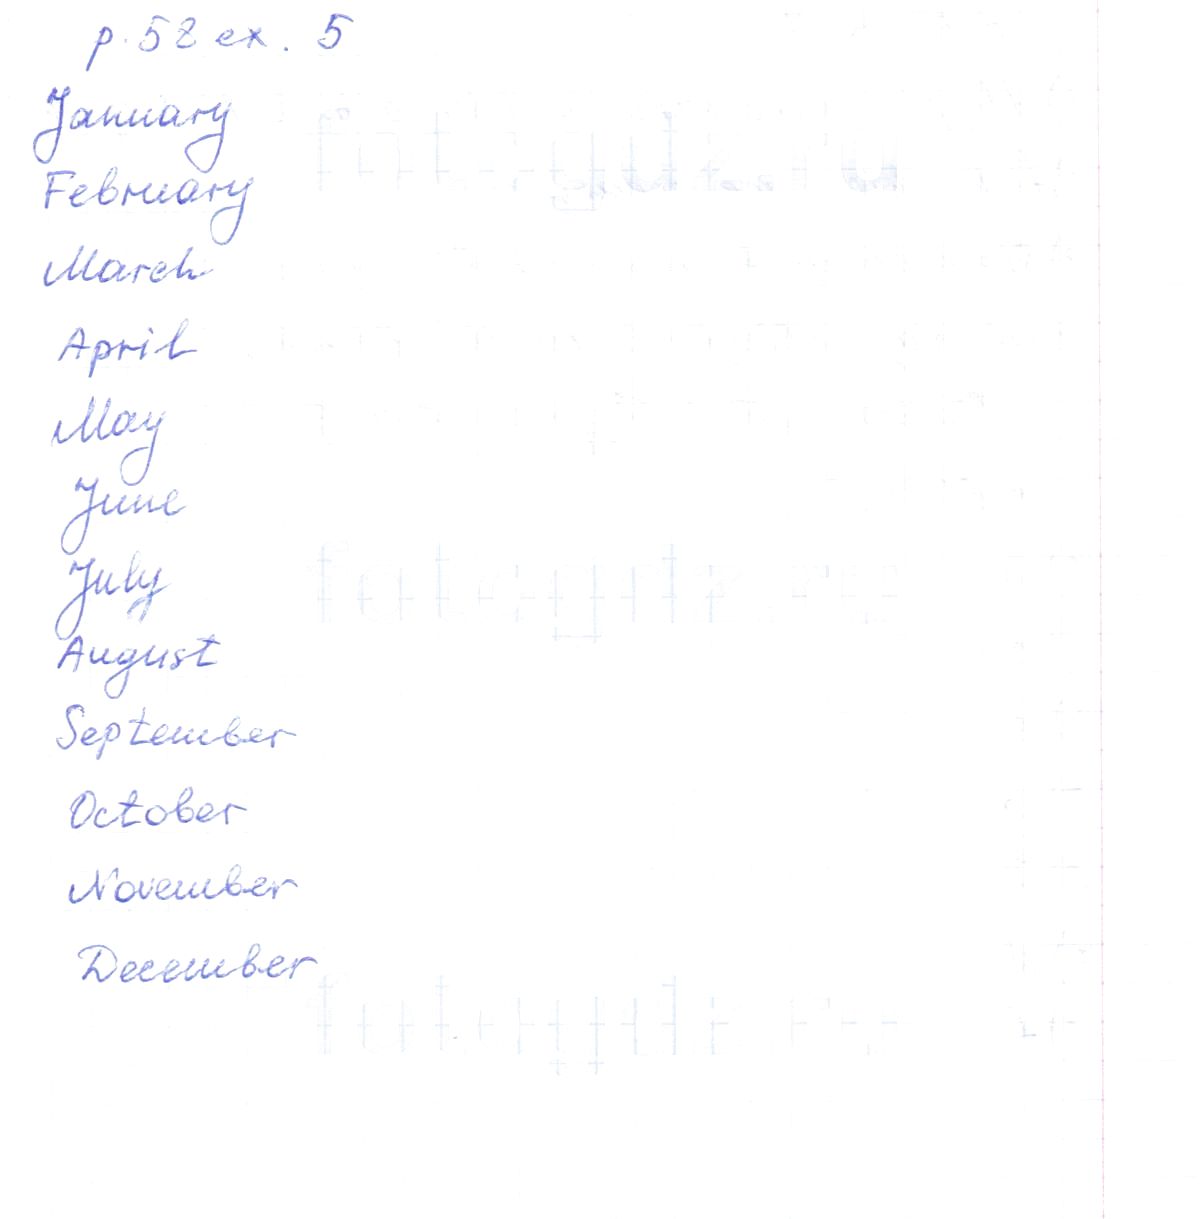 p. 52 ex. 5
January
February
March
April
May
June
July
August
September
October
November
December
fotogdz.ru
fotogdz.ru
fotogdz.ru